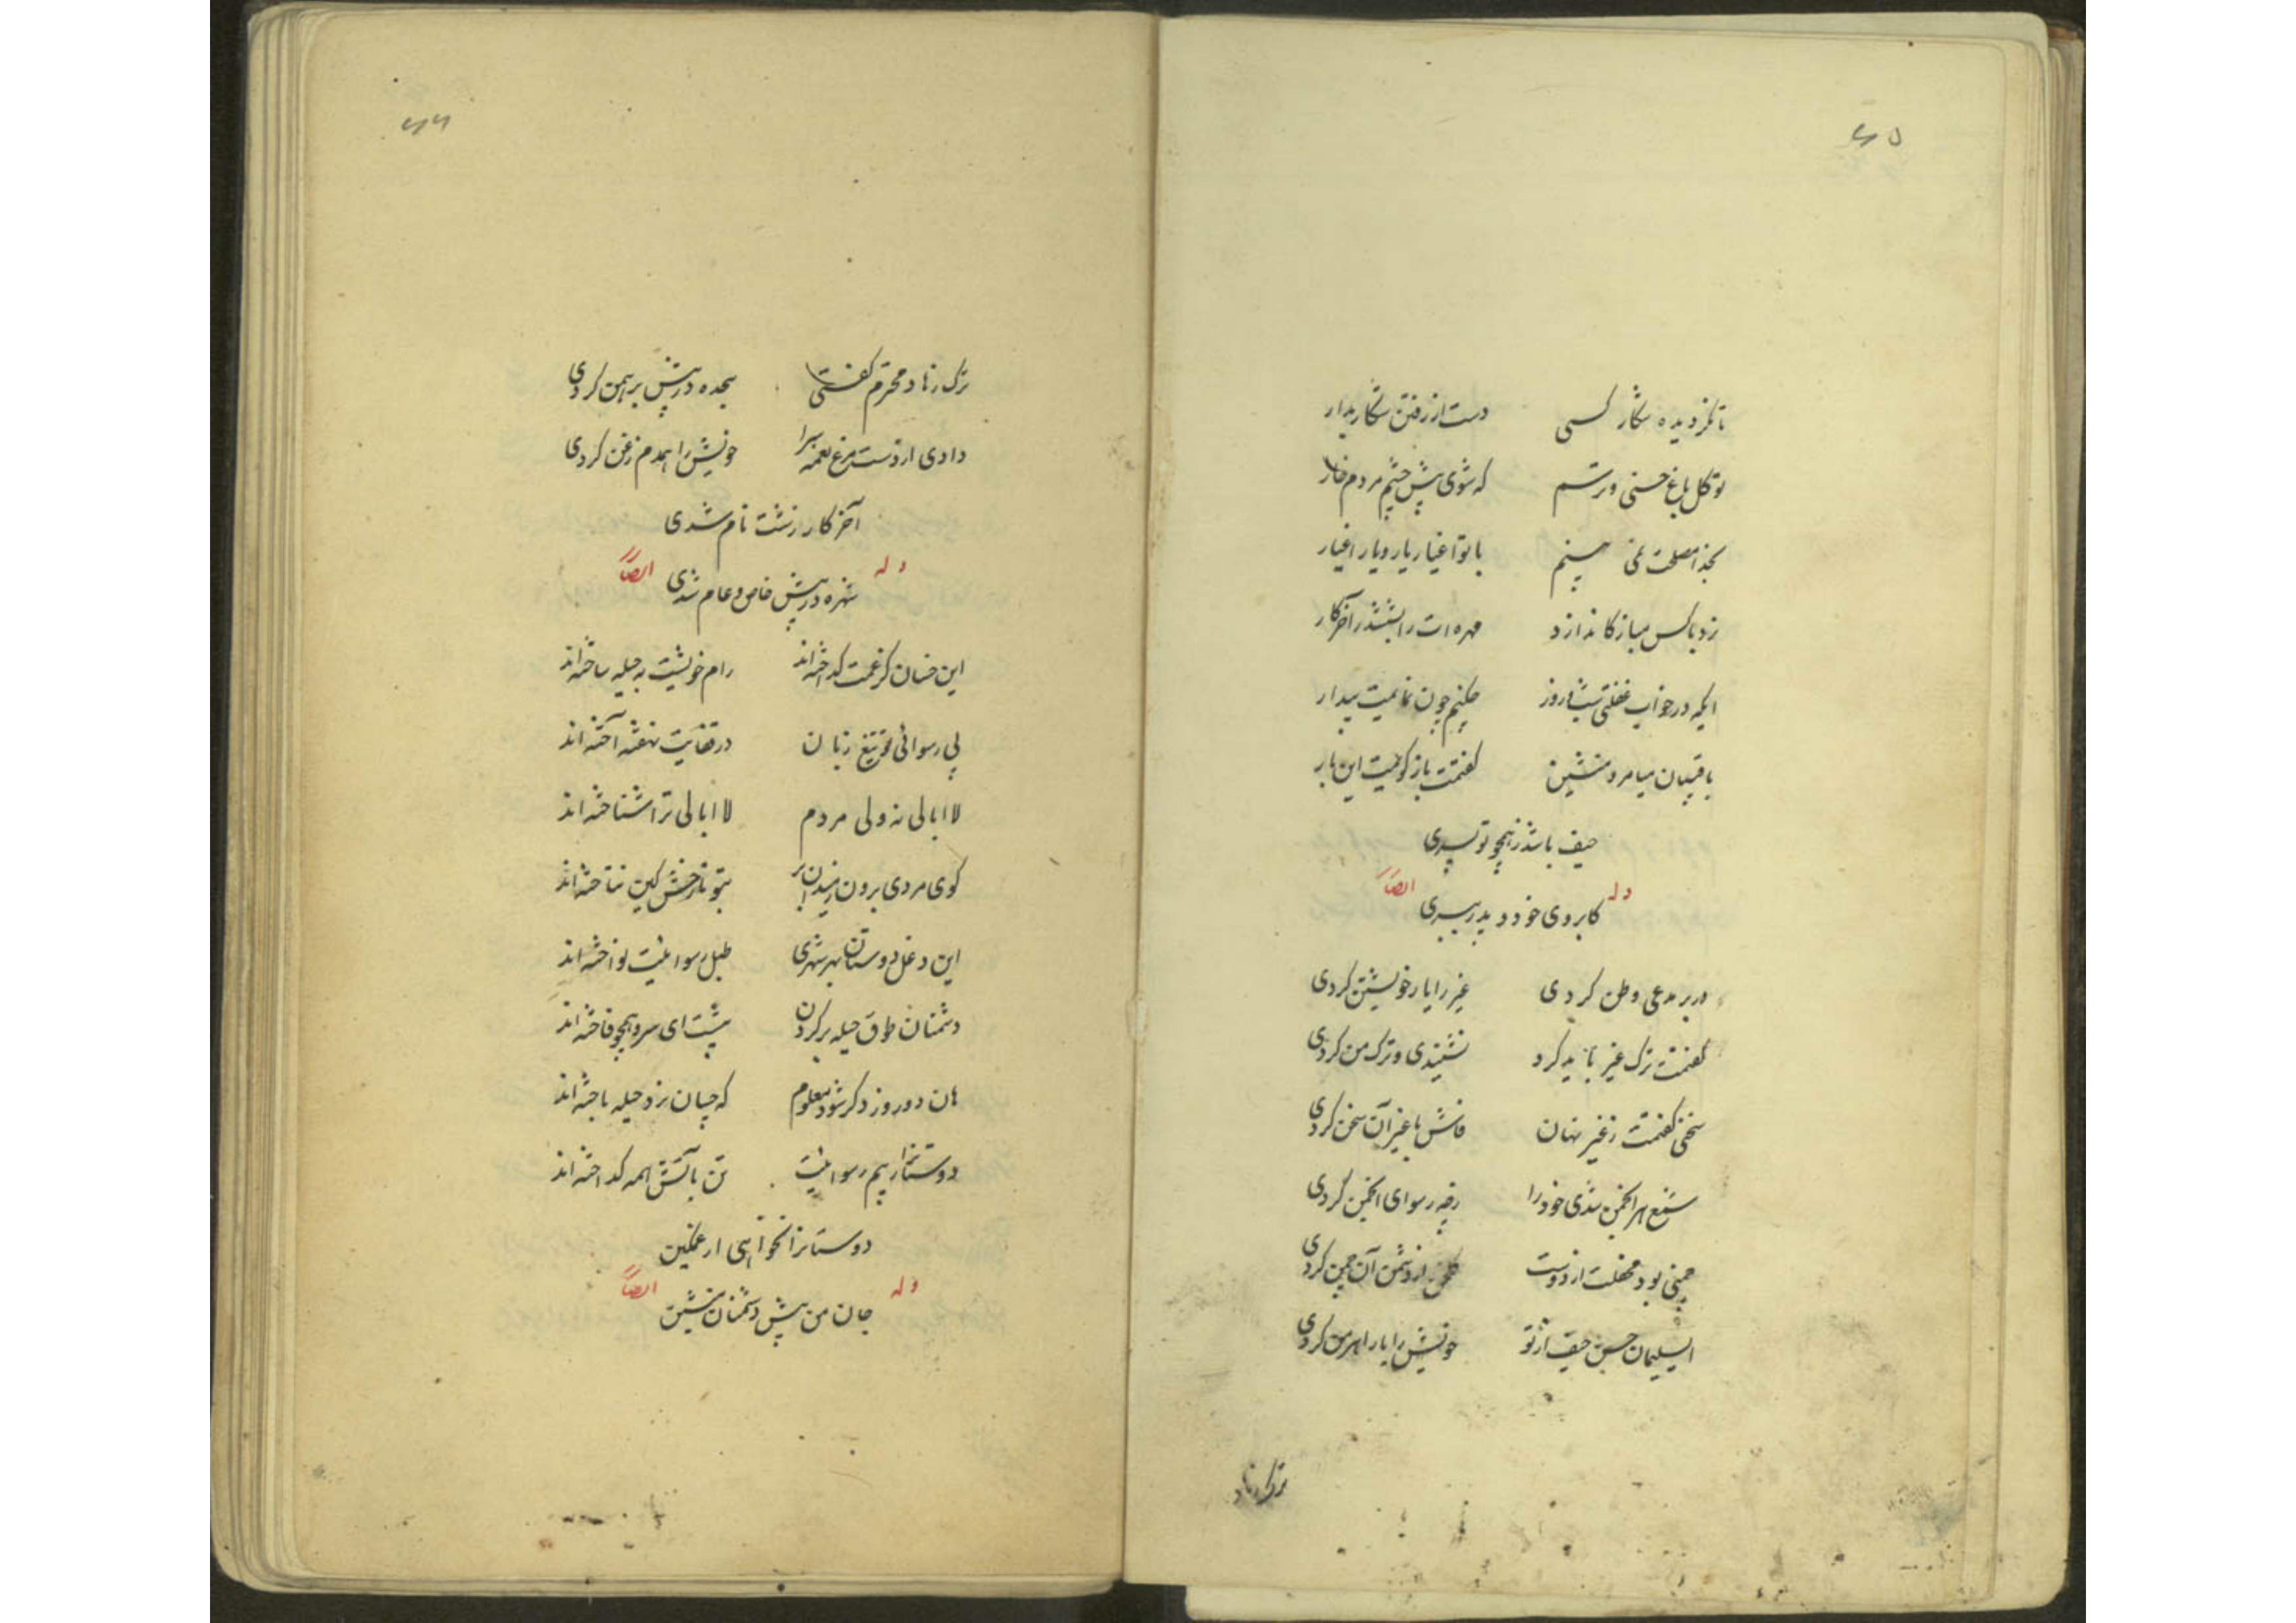 ۶۵
تا نگردیده شکار کسی دست از رفتن شکار بدار
تو گل باغ حسنی و ترسم که شوی پیش چشم مردم خار
بخدا مصلحت نمی بینم با تو اغیار یار و یار اغیار
نرد با کس مباز کاندازد مهره ات را بششدر آخر کار
ایکه در خواب غفلتی شب و روز چکنم چون نمائمت بیدار
با رقیبان میا مرو منشین گفتمت باز گویمت این بار
حیف باشد ز همچو تو پسری
وله ایضاً
کابروی خود و پدر ببری
در بر مدعی وطن کردی غیر را یار خویشتن کردی
گفتمت ترک غیر باید کرد نشنیدی و ترک من کردی
سخنی گفتمت ز غیر نهان فاش با غیر آن سخن کردی
شمع هر انجمن شدی خود را رفته رسوای انجمن کردی
چمنی بود محفلت از دوست گلخن از دشمن آن چمن کردی
ای سلیمان حسن حیف از تو خویش را یار اهرمن کردی
ترک زناد
۶۶
ترک زناد محترم گفتی سجده در پیش برهمن کردی
دادی از دست مرغ نغمه سرا خویش را همدم زغن کردی
آخر کار زشت نام شدی
وله ایضاً
شهره در پیش خاص و عام شدی
این خسان کز غمت گداخته اند رام خویشت به حیله ساخته اند
پی رسوائی تو تیغ زبان در قفایت نهفته آخته اند
لا ابالی نه ولی مردم لا ابالی ترا شناخته اند
گوی مردی برون ز میدان بر بتو تا رخش کین نتاخته اند
این دغل دوستان بهر شهری طبل رسوائیت نواخته اند
دشمنان طوق حیله بر گردن پیشت ای سرو همچو فاخته اند
هان دو روز دگر شود معلوم که چسان نرد حیله باخته اند
دوستانرا ز بیم رسوائیت تن بآتش همه گداخته اند
دوستانرا نخواهی ار غمگین
وله ایضاً
جان من پیش دشمنان منشین